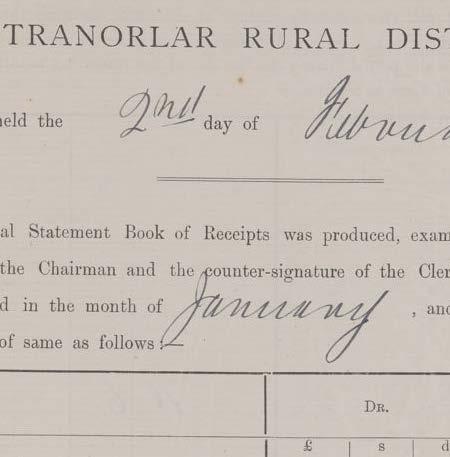 TRANORLAR RURAL DIST
held the 2nd day of Februa
al Statement Book of Receipts was produced, exam
the Chairman and the counter-signature of the Cler
d in the month of January , and
of same as follows:—
DR.
£ s d